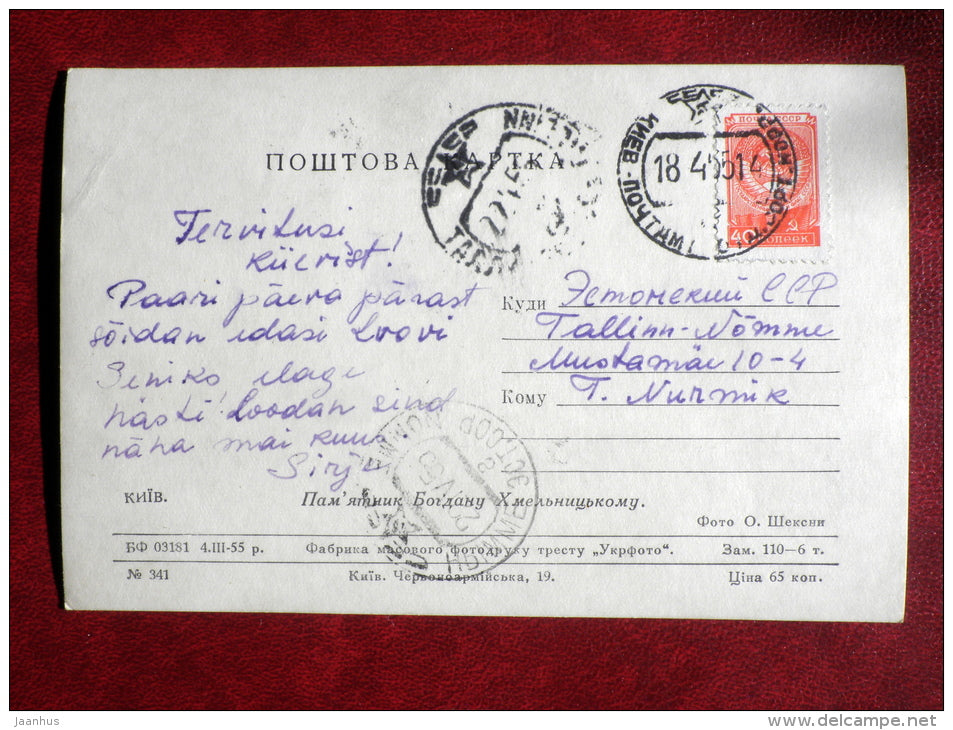 ПОШТОВА КАРТКА
EESTI NSV
TALLINN
КИЕВ-ПОЧТАМТ
18 4 55 14
ПОЧТА СССР
40 КОПЕЕК
Tervitusi
Kiievist!
Paari päeva pärast
sõidan edasi Lvovi
Seniks elage
hästi! Loodan sind
näha mai kuus.
Sirje
Куди Эстонский ССР
Tallinn-Nõmme
Mustamäe 10-4
Кому T. Nurmik
НЫММЕ ЭСТ.ССР
NÕMME
КИЇВ. Пам'ятник Богдану Хмельницькому.
Фото О. Шексни
БФ 03181 4.III-55 р. Фабрика масового фотодруку тресту „Укрфото“. Зам. 110—6 т.
№ 341 Київ. Червоноармійська, 19. Ціна 65 коп.
Jaanhus
www.delcampe.net